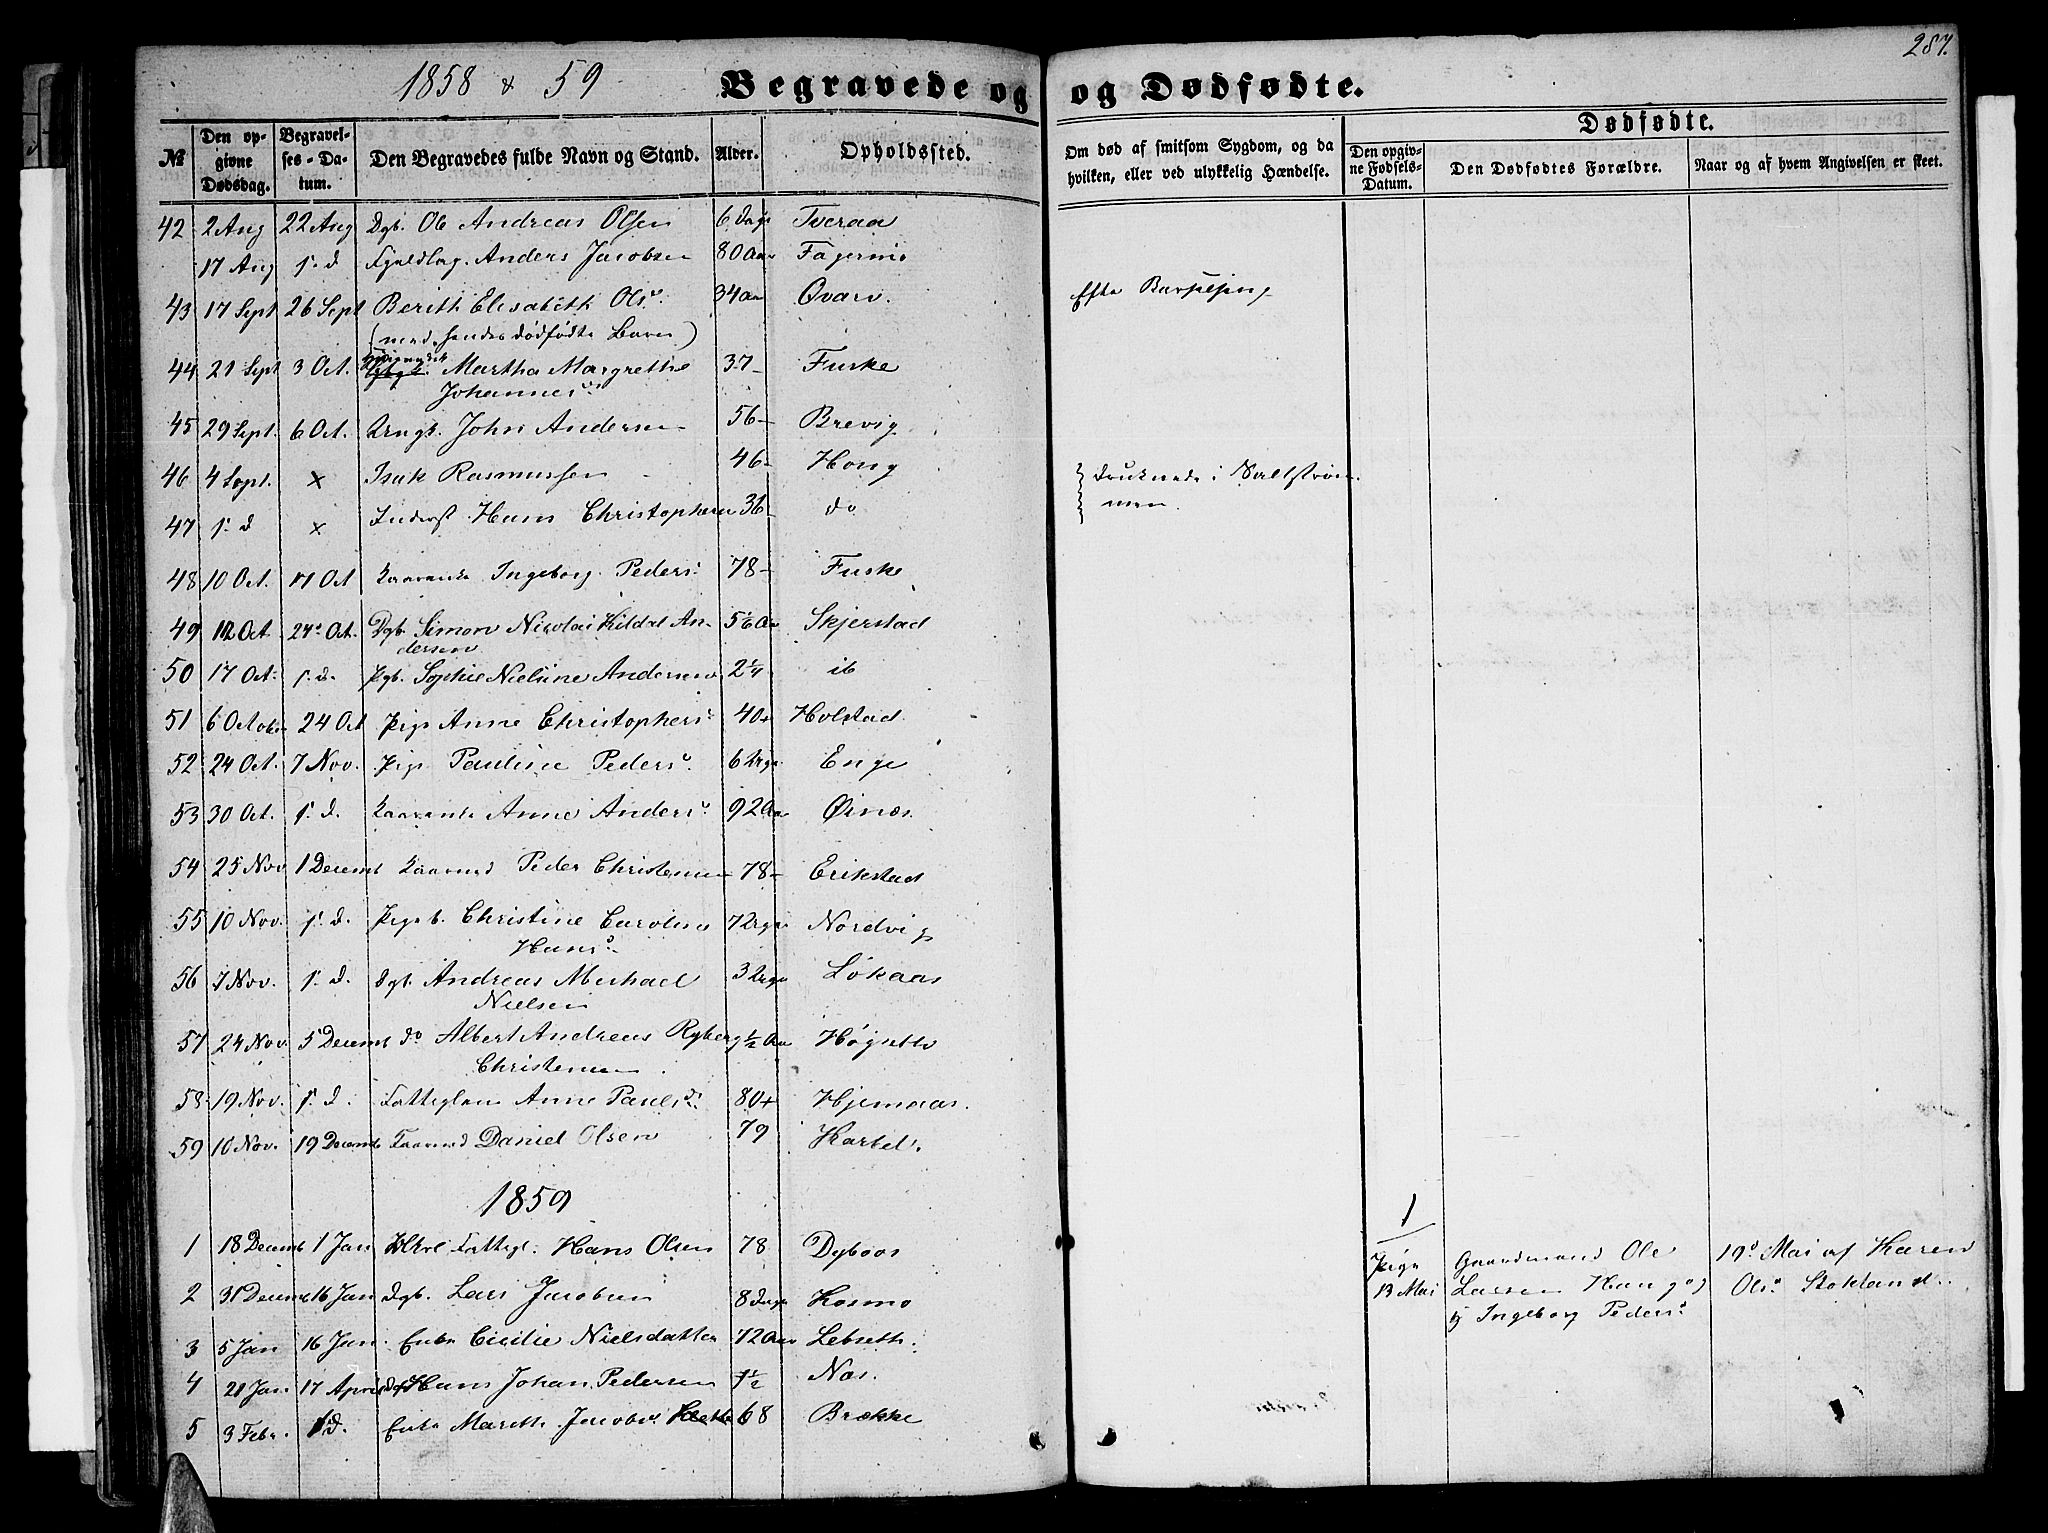 1858 & 59
Begravede og
og Dødfødte.
287.
№
Den op-givne Dødsdag.
Begravel-ses-Da-tum.
Den Begravedes fulde Navn og Stand.
Alder.
Opholdssted.
Om død af smitsom Sygdom, og da hvilken, eller ved ulykkelig Hændelse.
Dødfødte.
Den opgiv-ne Fødsels-Datum.
Den Dødfødtes Forældre.
Naar og af hvem Angivelsen er skeet.
42 2 Aug 22 Aug Dgb. Ole Andreas Olsen 6 Dage Tveraa
17 Aug s. d Anders Jacobsen 80 Aar Fagermo
43 17 Sept 26 Sept Berith Elisabeth Ols. 34 Aar Qvarv. Efter Barselseng
(med hendes dødfødte Barn)
44 21 Sept 3 Oct. Martha Margrethe 37 Fuske
Johannes.
45 29 Sept. 6 Oct. Ungk. John Andersen 56 Brevig
46 4 Sept. x Isak Rasmussen 46 Hong } druknede i Saltstrøm-
47 s. d x Inderst Hans Christophersen 36 do men.
48 10 Oct. 17 Oct Kaarenke Ingeborg Peders. 78 Fuske
49 12 Oct 24. Oct. Dgb. Simon Nicolai Kildal An- 5 1/6 Aar Skjerstad
dersen
50 17 Oct. s. d. Pgb. Sophie Nielsine Andersen 2 1/4 ib
51 6 October 24 Oct Pige Anne Christophers. 40 Holstad
52 24 Oct. 7 Nov. Pige Pauline Peders. 6 Uger Enge
53 30 Oct. s. d. Kaarenke Anne Anders. 92 Aar Øinæs.
54 25 Nov 1 Decemb Kaarmd Peder Christensen 78 Erikstad
55 10 Nov. s. d. Pigeb. Christine Caroline 7 Uger Nordvig
Hans.
56 7 Nov. s. d. Dgb. Andreas Michael 3 Uger Løkaas
Nielsen
57 24 Nov. 5 Decemb do Albert Andreas Ryberg 1/2 Aar Høgsetlv
Christensen.
58 19 Nov. s. d. Fattiglem Anne Pauls. 80 Hjemaas.
59 10 Nov. 19 Decemb Kaarmd Daniel Olsen 79 Karbel.
1859
1
1 18 Decemb 1 Jan Fattigl. Hans Olsen 78 Dybvos
Pige Gaardmand Ole 19. Mai af Karen
2 31 Decemb 16 Jan Dgb. Lars Jacobsen 8 Dage Kosmo
13 Mai Larsen Hang og Ols. Stokland.
Ingeborg Peders.
3 5 Jan 16 Jan. Enke Cicilie Nielsdatter 72 Aar Lebseth.
4 21 Jan 17 April Hans Johan Pedersen 1 1/2 Næs.
5 3 Febr. s d. Enke Marith Jacobs. 68 Brække